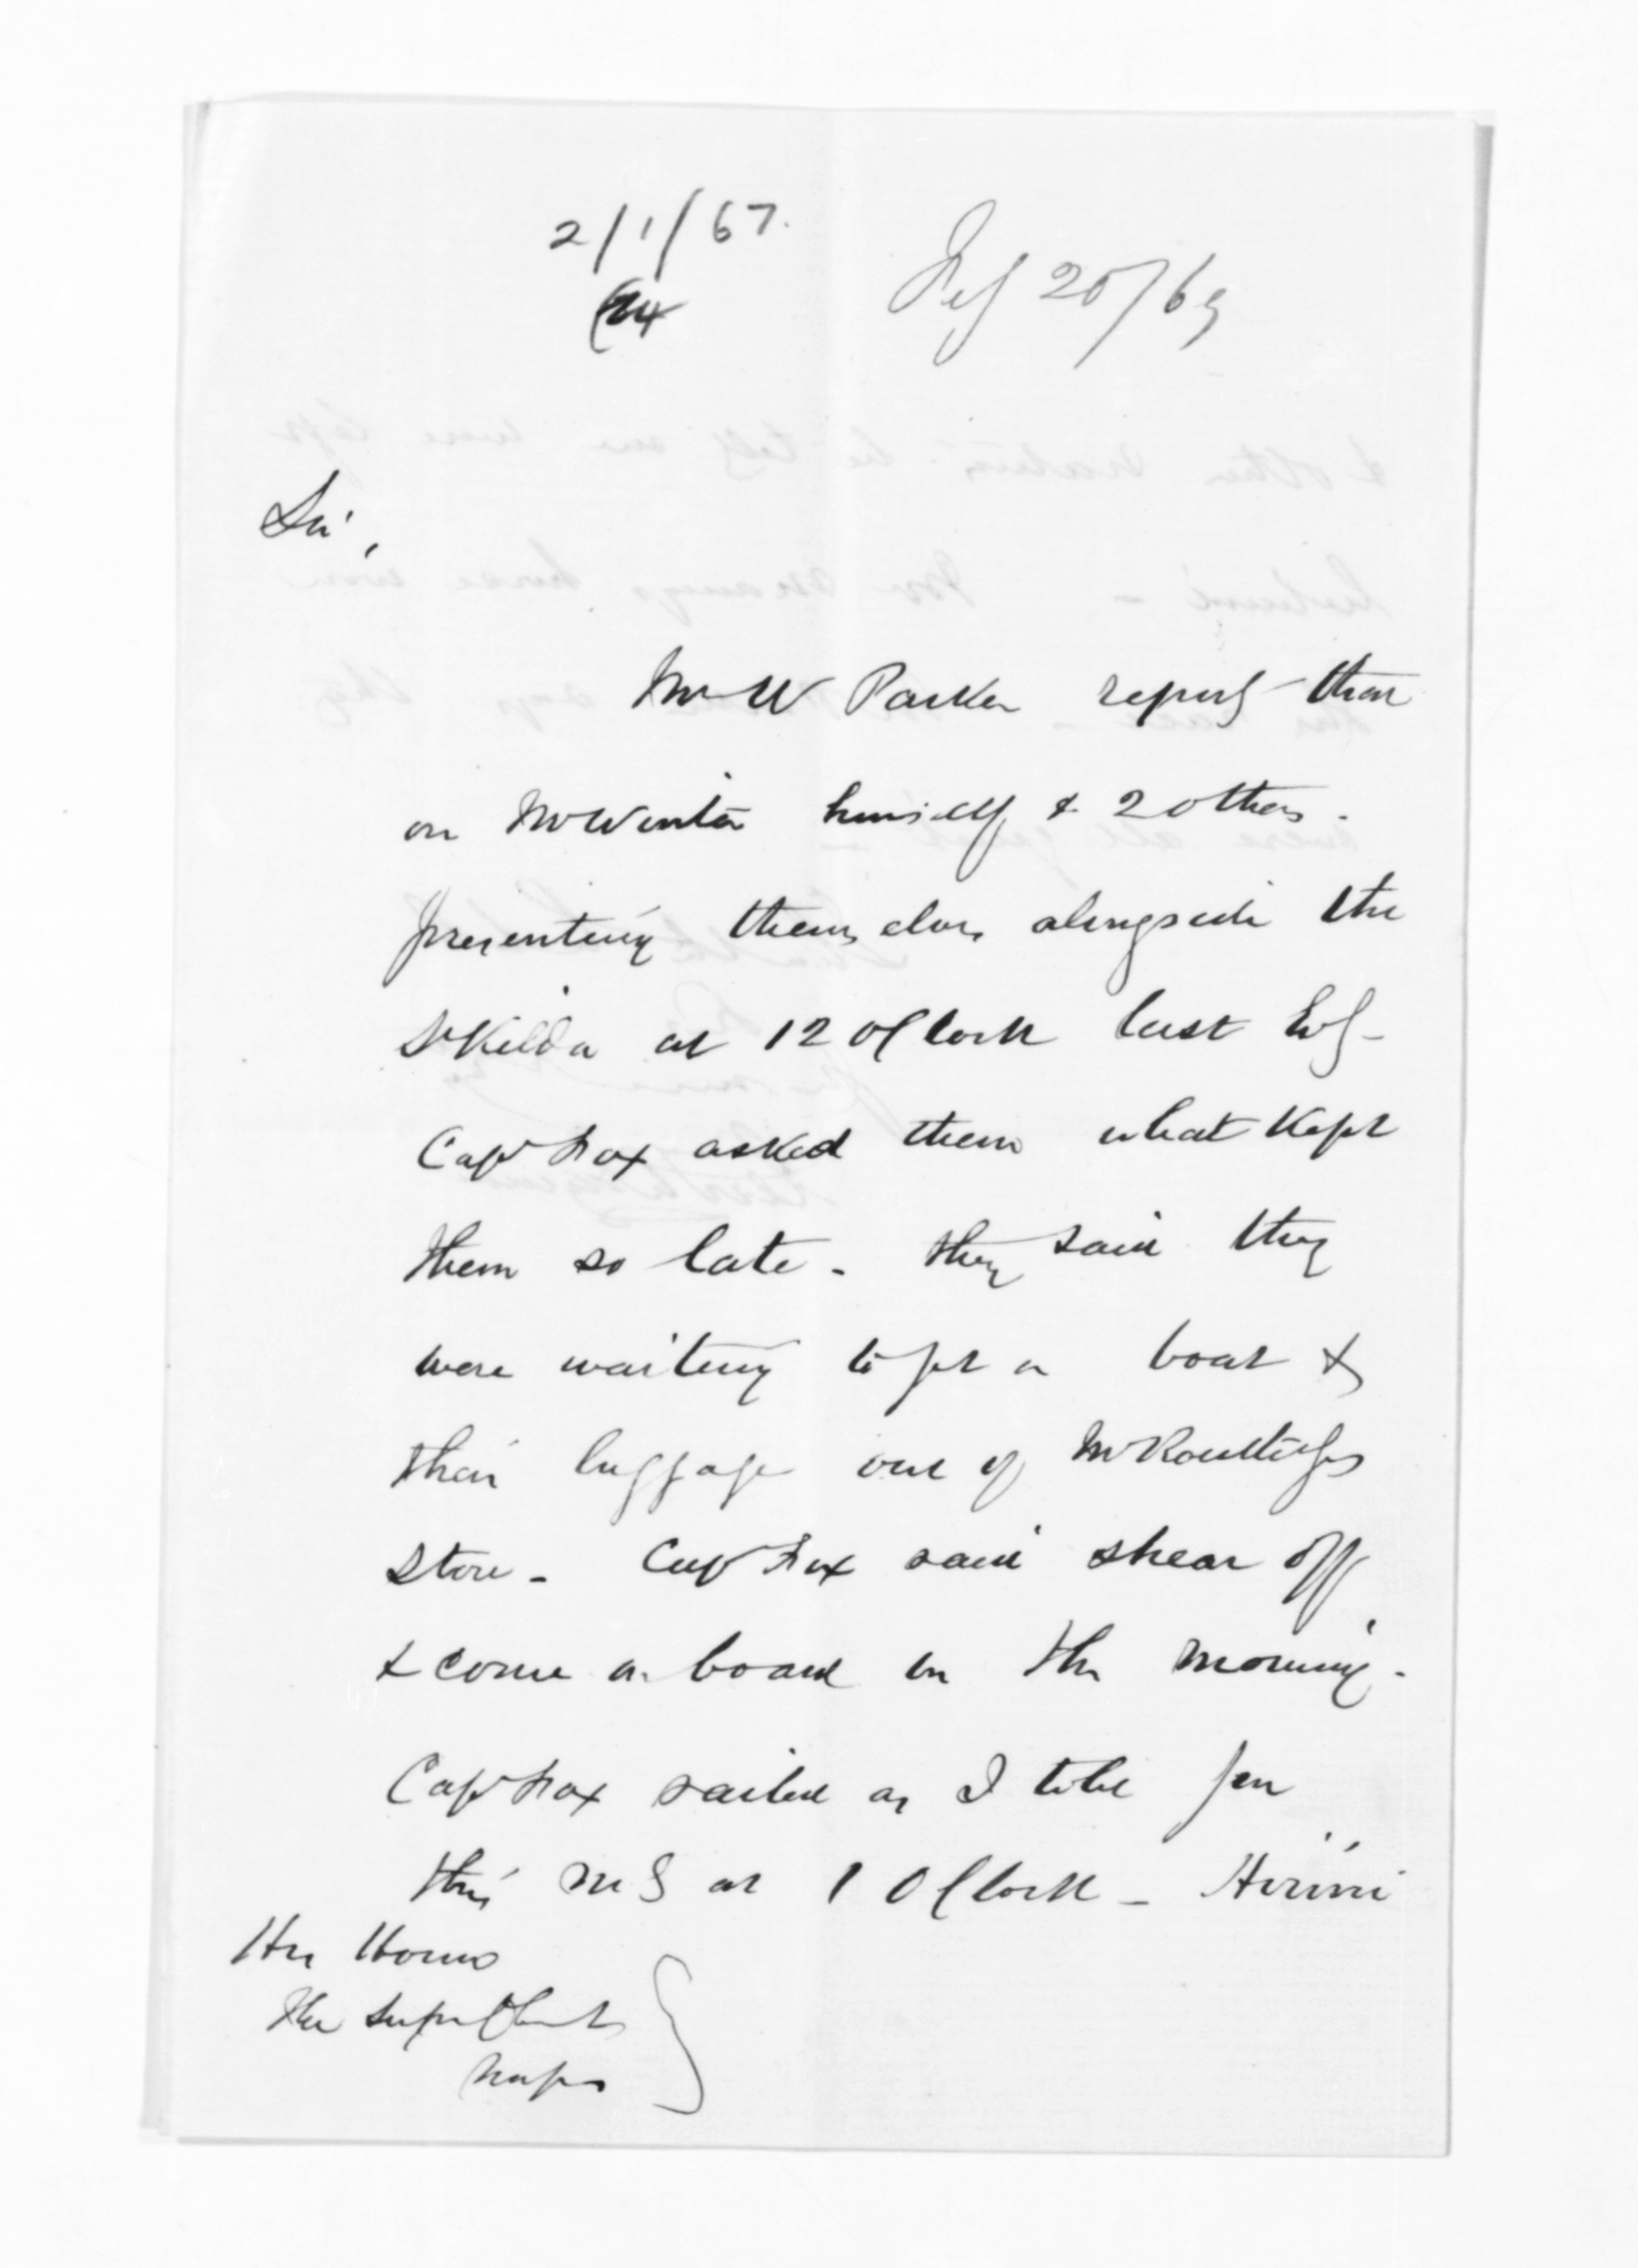 2/1/67.
Feb 20/69
Sir,
Mr W Parker reports that
on Mr Winter himself & 2 others.
presenting themselves alongside the
St Kilda at 12 OClock last Evg -
Capt Fox asked them what kept
them so late - they said they
were waiting to get a boat &
their luggage out of Mr Routledges
store - Capt Fox said shear off
& come a board in the morning -
Capt Fox sailed as I told you
this Mg at 1 OClock - Hirini
His Honor
The Supt
Napier